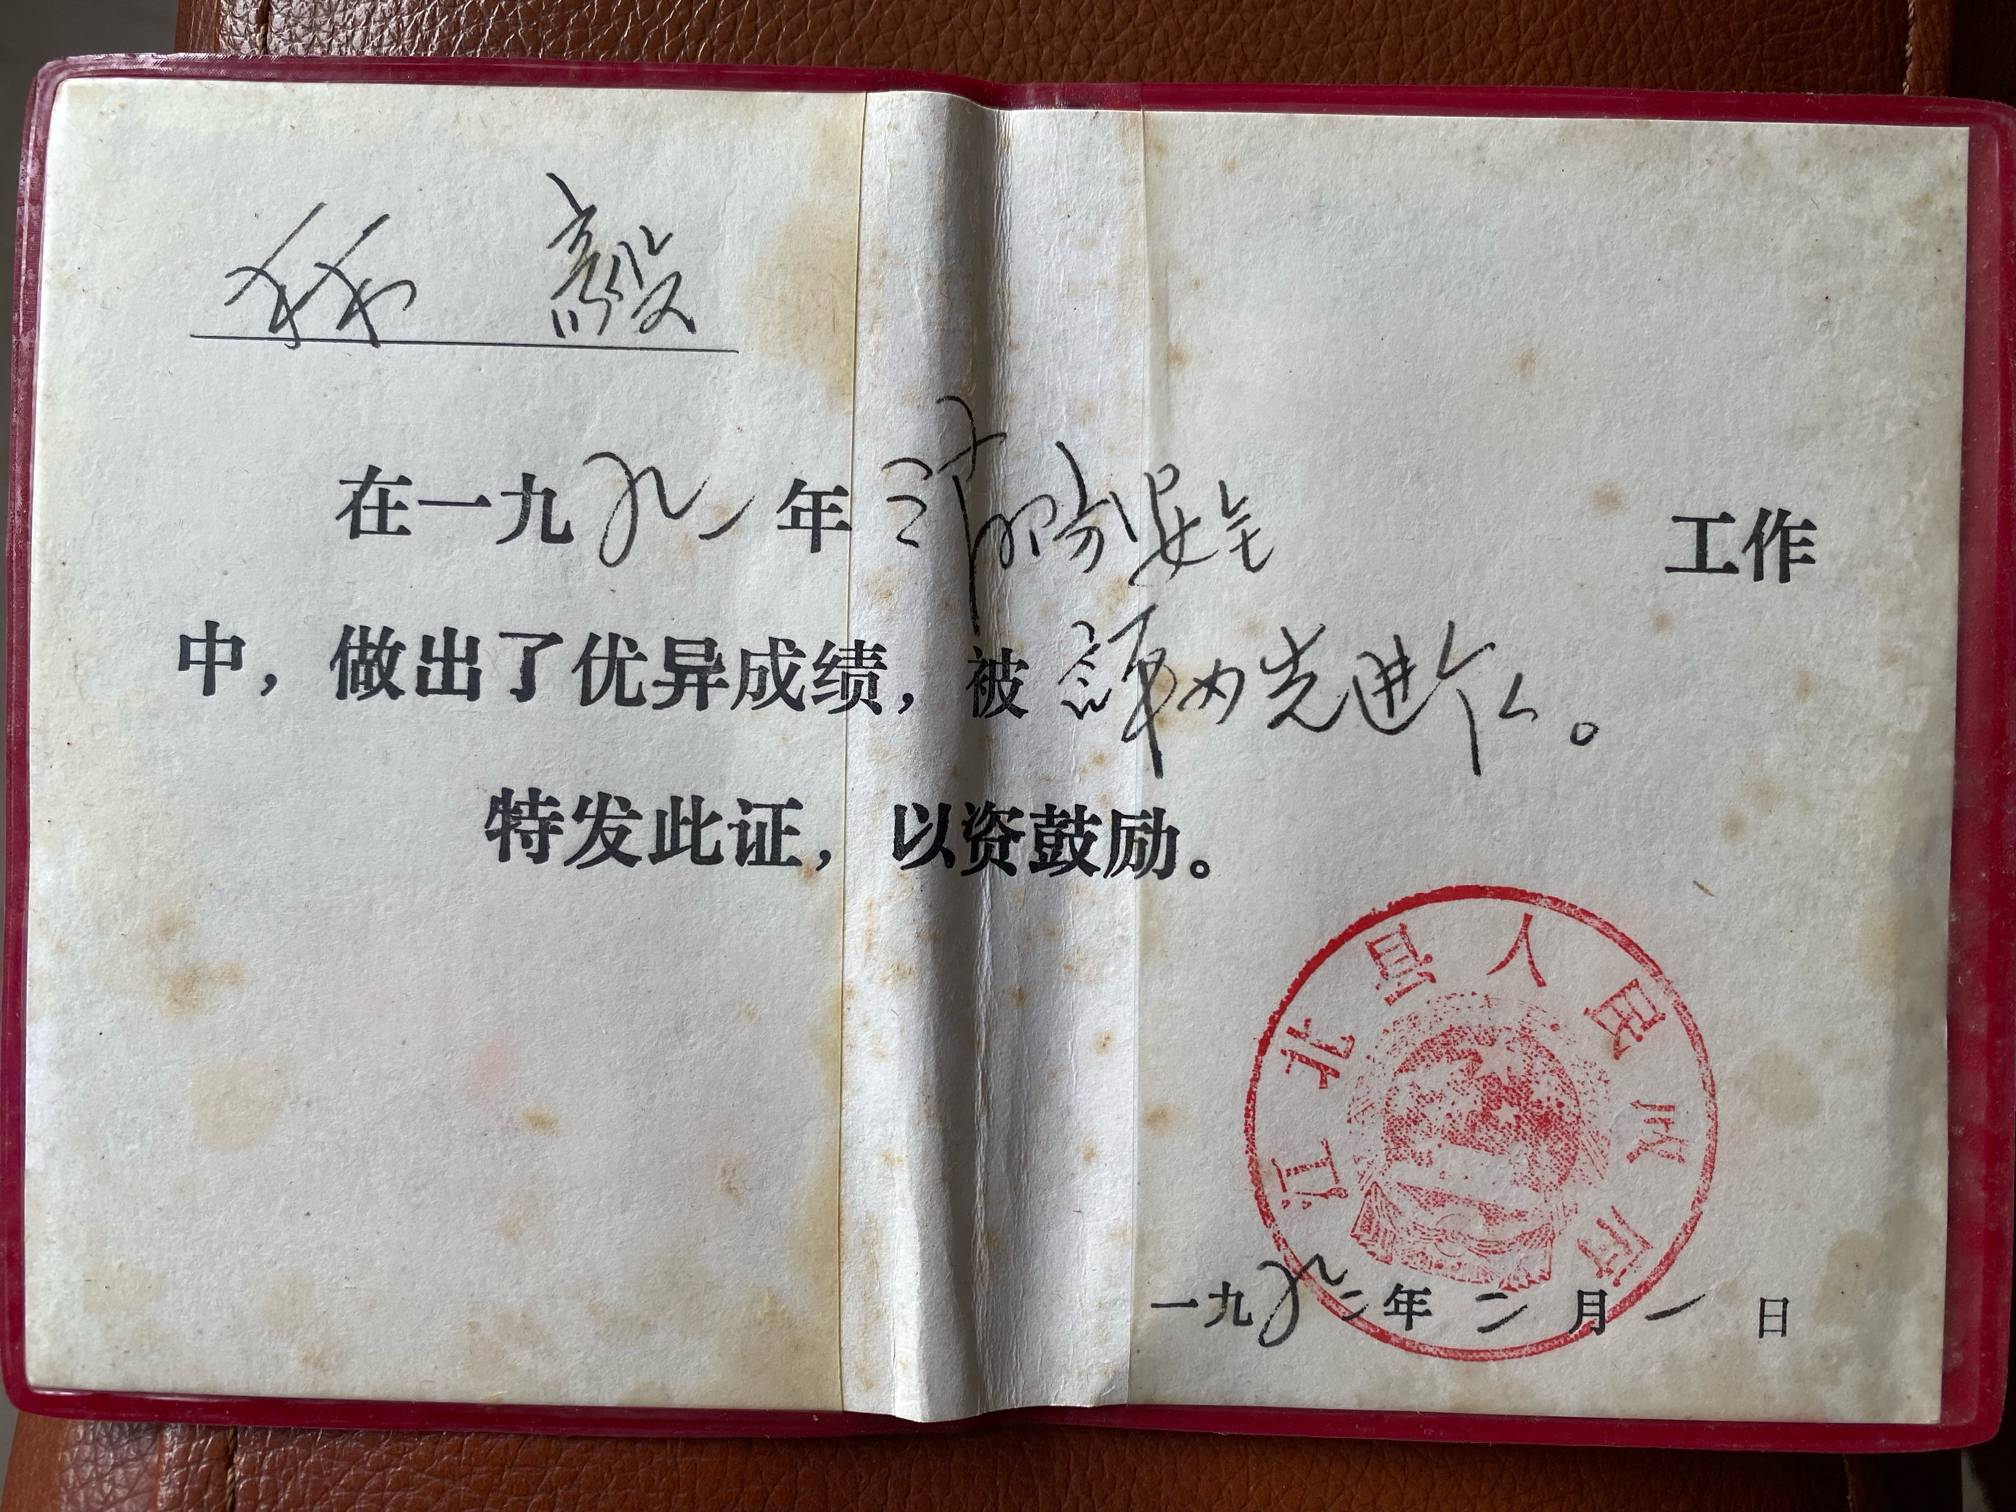 林 毅
在一九九一年消防安全工作
中，做出了优异成绩，被评为先进个人。
特发此证，以资鼓励。
江北县人民政府
一九九二年二月一日